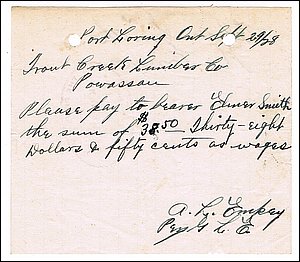 Port Loring Ont Sept 29/28
Trout Creek Lumber Co
Powassan
Please pay to bearer Elmer Smith
the sum of $38.50 Thirty-eight
Dollars & fifty cents as wages
A. G.
Per G L E